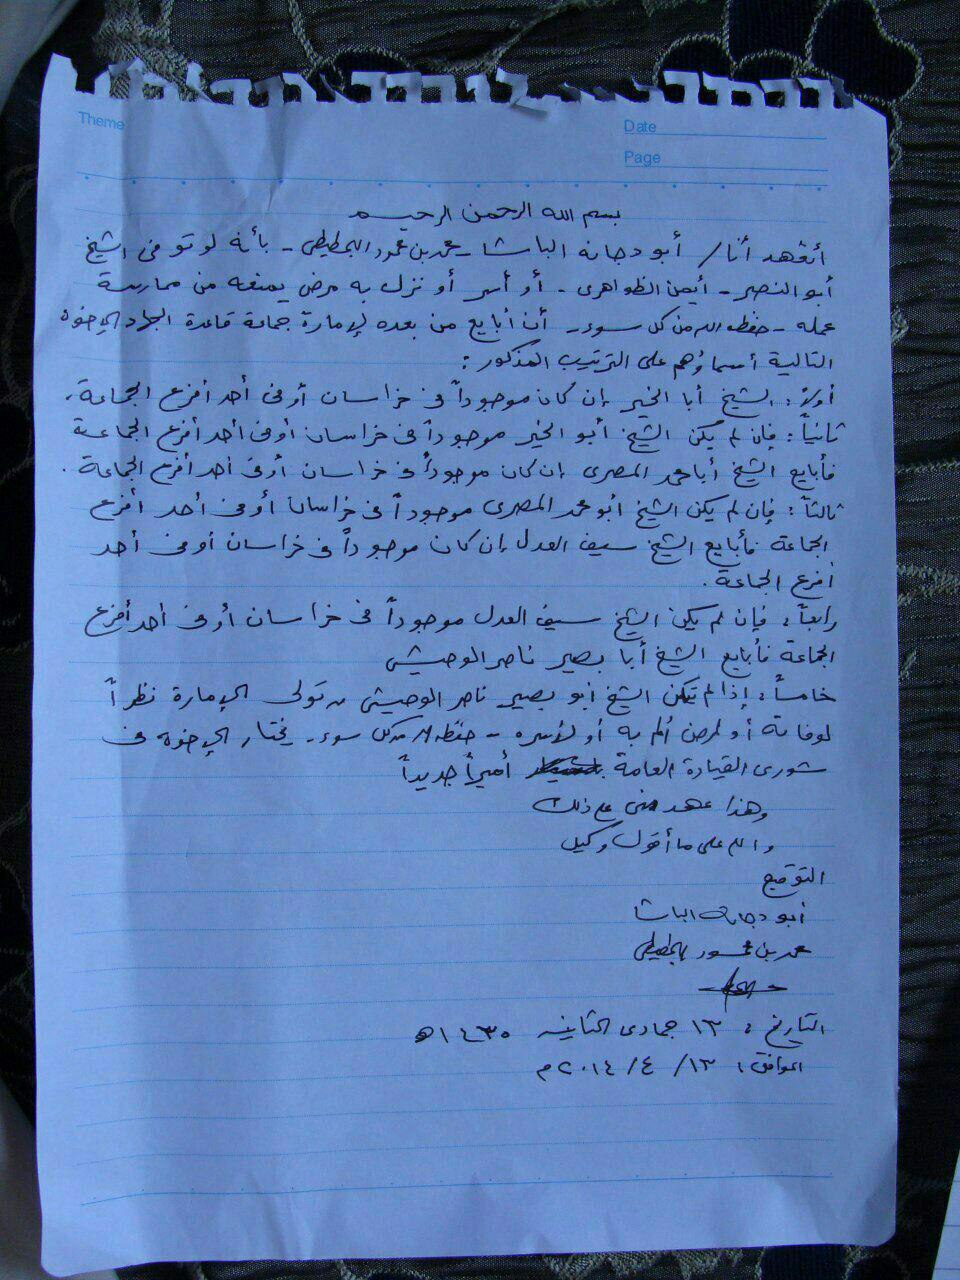 Theme
Date
Page
بسم الله الرحمن الرحيم
أتعهد أنا / أبو دجانه الباشا - محمد بن محمود البحطيطى - بأنه لو توفى الشيخ
أبو النصر - أيمن الظواهرى - أو أسر أو نزل به مرض يمنعه من ممارسة
عمله - حفظه الله من كل سوء - أن أبايع من بعده لإمارة جماعة قاعدة الجهاد الإخوة
التالية أسماؤهم على الترتيب المذكور :
أولاً : الشيخ أبا الخير إن كان موجوداً فى خراسان أو فى أحد أفرع الجماعة .
ثانياً : فإن لم يكن الشيخ أبو الخير موجوداً فى خراسان أو فى أحد أفرع الجماعة
فأبايع الشيخ أبا محمد المصرى إن كان موجوداً فى خراسان أو فى أحد أفرع الجماعة .
ثالثاً : فإن لم يكن الشيخ أبو محمد المصرى موجوداً فى خراسان أو فى أحد أفرع
الجماعة فأبايع الشيخ سيف العدل إن كان موجوداً فى خراسان أو فى أحد
أفرع الجماعة .
رابعاً : فإن لم يكن الشيخ سيف العدل موجوداً فى خراسان أو فى أحد أفرع
الجماعة فأبايع الشيخ أبا بصير ناصر الوحيشى
خامساً : إذا لم يتمكن الشيخ أبو بصير ناصر الوحيشى من تولى الإمارة نظراً
لوفاته أو لمرض ألم به أو لأسره - حفظه الله من كل سوء - يختار الإخوة فى
شورى القيادة العامة أميراً جديداً
وهذا عهد منى على ذلك
والله على ما أقول وكيل
التوقيع
أبو دجانه الباشا
محمد بن محمود البحطيطى
التاريخ : ١٣ جمادى الثانية ١٤٣٥ هـ
الموافق : ١٣ / ٤ / ٢٠١٤ م